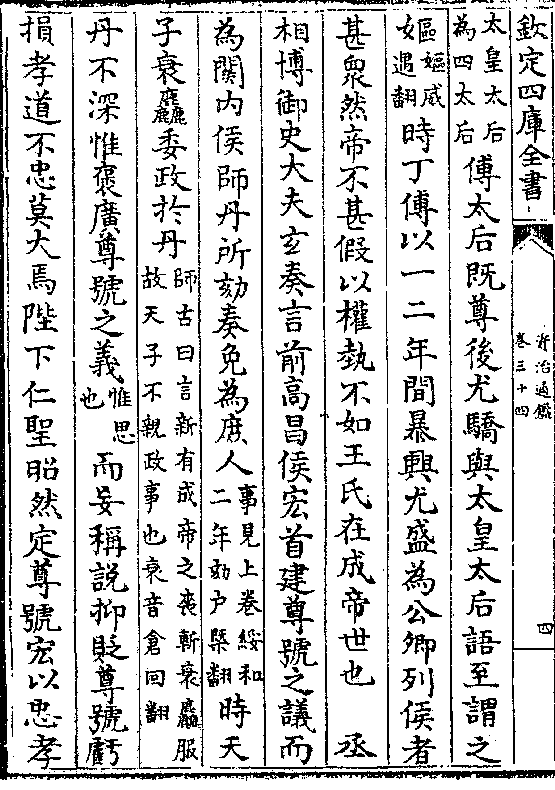 欽定四庫全書
資治通鑑
卷三十四
四
太皇太后
為四太后
傅太后既尊後尤驕與太皇太后語至謂之
嫗嫗威
遇翻
時丁傅以一二年間暴興尤盛為公卿列侯者
甚衆然帝不甚假以權埶不如王氏在成帝世也 丞
相博御史大夫玄奏言前高昌侯宏首建尊號之議而
為關内侯師丹所劾奏免為庶人
事見上卷綏和
二年劾户槩翻
時天
子衰麤委政於丹
師古曰言新有成帝之喪斬衰麤服
故天子不親政事也衰音倉回翻
丹不深惟褒廣尊號之義
惟思
也
而妄稱說抑貶尊號虧
損孝道不忠莫大焉陛下仁聖昭然定尊號宏以忠孝